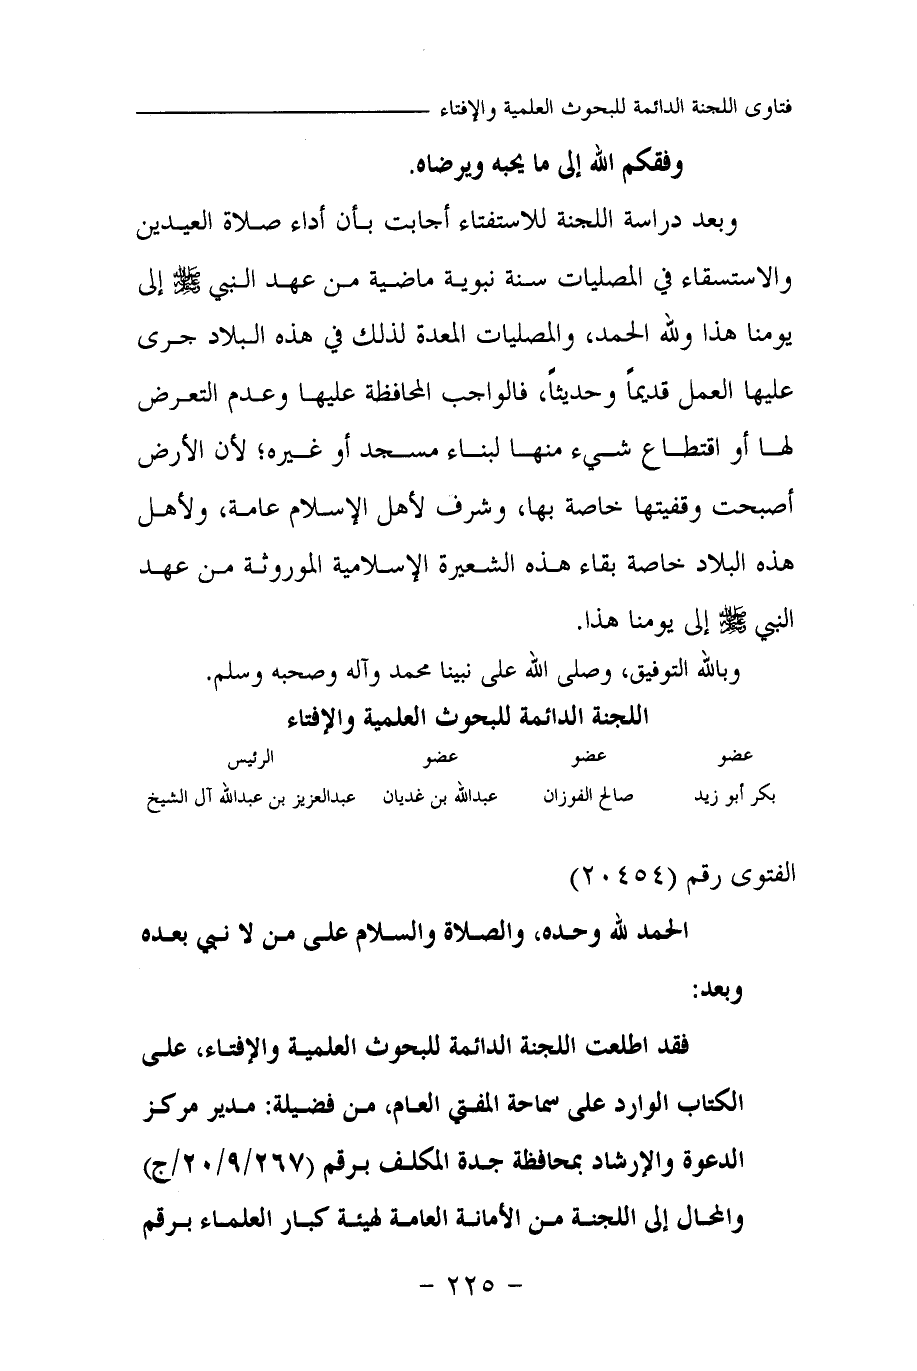 فتاوى اللجنة الدائمة للبحوث العلمية والإفتاء
وفقكم الله إلى ما يحبه ويرضاه.
وبعد دراسة اللجنة للاستفتاء أجابت بأن أداء صلاة العيدين
والاستسقاء في المصليات سنة نبوية ماضية من عهد النبي ﷺ إلى
يومنا هذا ولله الحمد، والمصليات المعدة لذلك في هذه البلاد جرى
عليها العمل قديماً وحديثاً، فالواجب المحافظة عليها وعدم التعرض
لها أو اقتطاع شيء منها لبناء مسجد أو غيره؛ لأن الأرض
أصبحت وقفيتها خاصة بها، وشرف لأهل الإسلام عامة، ولأهل
هذه البلاد خاصة بقاء هذه الشعيرة الإسلامية الموروثة من عهد
النبي ﷺ إلى يومنا هذا.
وبالله التوفيق، وصلى الله على نبينا محمد وآله وصحبه وسلم.
اللجنة الدائمة للبحوث العلمية والإفتاء
عضو عضو عضو الرئيس
بكر أبو زيد صالح الفوزان عبدالله بن غديان عبدالعزيز بن عبدالله آل الشيخ
الفتوى رقم (٢٠٤٥٤)
الحمد لله وحده، والصلاة والسلام على من لا نبي بعده
وبعد:
فقد اطلعت اللجنة الدائمة للبحوث العلمية والإفتاء، على
الكتاب الوارد على سماحة المفتي العام، من فضيلة: مدير مركز
الدعوة والإرشاد بمحافظة جدة المكلف برقم (٢٠/٩/٢٦٧/ج)
والمحال إلى اللجنة من الأمانة العامة لهيئة كبار العلماء برقم
- ٢٢٥ -